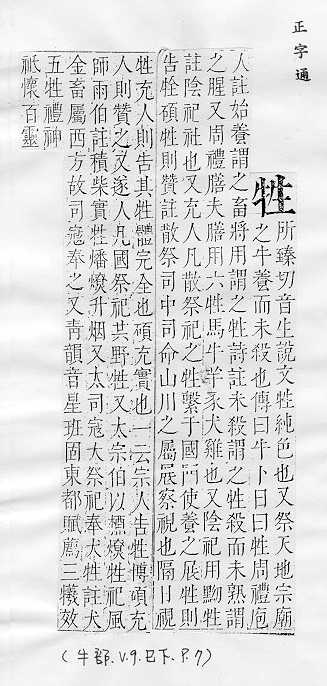 正字通
牲
所臻切音生說文牲純色也又祭天地宗廟
之牛養而未殺也傳曰牛卜日曰牲周禮庖
人註始養謂之畜將用謂之牲詩註未殺謂之牲殺而未熟謂
之腥又周禮膳夫膳用六牲馬牛羊豕犬雞也又陰祀用黝牲
註陰祀社也又充人凡散祭祀之牲繫于國門使養之展牲則
告牷碩牲則贊註散祭司中司命山川之屬展察視也隔日視
牲充人則告其牲體完全也碩充實也一云宗人告牲博碩充
人則贊之又遂人凡國祭祀共野牲又太宗伯以槱燎牲祀風
師雨伯註積柴實牲燔燎升烟又太司寇大祭祀奉犬牲註犬
金畜屬西方故司寇奉之又靑韻音星班固東都賦薦三犧效
五牲禮神
祇懷百靈
(牛部.V.9.巳下.P.7)